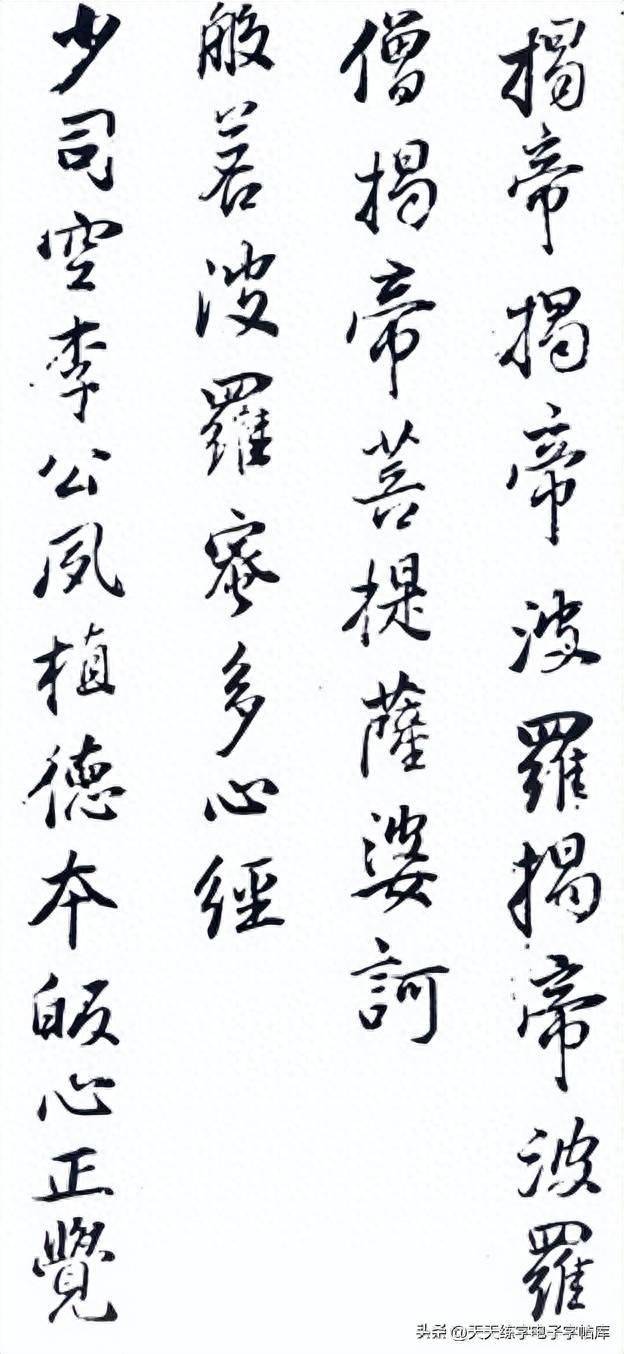 揭帝揭帝波羅揭帝波羅
僧揭帝菩提薩婆訶
般若波羅蜜多心經
少司空李公夙植德本皈心正覺
头条 @天天练字电子字帖库